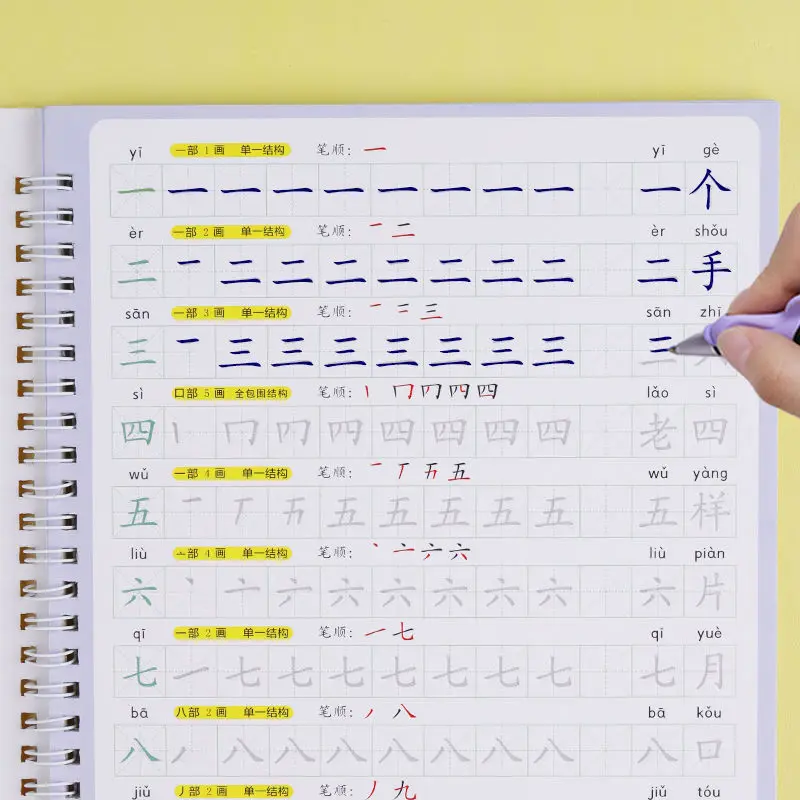 yī 一部 1 画 单一结构 笔顺: 一 yī gè
一 一 一 一 一 一 一 一 一 一 个
èr 一部 2 画 单一结构 笔顺: 一 二 èr shǒu
二 一 二 二 二 二 二 二 二 二 手
sān 一部 3 画 单一结构 笔顺: 一 二 三 sān zhī
三 一 三 三 三 三 三 三 三 三
sì 口部 5 画 全包围结构 笔顺: 丨 冂 四 四 lǎo sì
四 丨 冂 四 四 四 四 四 老 四
wǔ 一部 4 画 单一结构 笔顺: 一 丅 五 wǔ yàng
五 一 丅 五 五 五 五 五 五 样
liù 亠部 4 画 单一结构 笔顺: 丶 亠 六 liù piàn
六 丶 亠 六 六 六 六 六 六 片
qī 一部 2 画 单一结构 笔顺: 一 七 qī yuè
七 一 七 七 七 七 七 七 七 七 月
bā 八部 2 画 单一结构 笔顺: 丿 八 bā kǒu
八 丿 八 八 八 八 八 八 八 八 口
jiǔ 丿部 2 画 单一结构 笔顺: 丿 九 jiǔ tóu